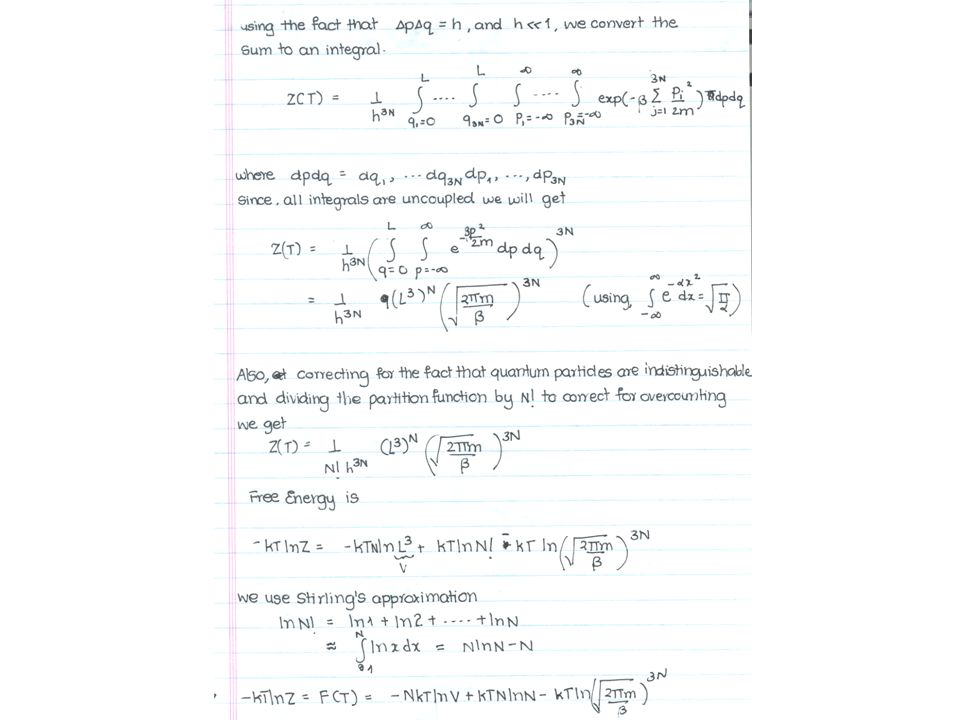 using the fact that ΔpΔq = h, and h << 1, we convert the
sum to an integral.
Z(T) = 1/h^{3N} ∫_{q_1=0}^{L} .... ∫_{q_{3N}=0}^{L} ∫_{p_1=-∞}^{∞} .... ∫_{p_{3N}=-∞}^{∞} exp(-β Σ_{j=1}^{3N} p_i^2/2m) dpdq
where dpdq = dq_1, ... dq_{3N} dp_1, ..., dp_{3N}
Since, all integrals are uncoupled we will get
Z(T) = 1/h^{3N} (∫_{q=0}^{L} ∫_{p=-∞}^{∞} e^{-βp^2/2m} dp dq)^{3N}
= 1/h^{3N} (L^3)^N (√(2πm/β))^{3N} (using, ∫_{-∞}^{∞} e^{-αx^2} dx = √(π/α))
Also, correcting for the fact that quantum particles are indistinguishable
and dividing the partition function by N! to correct for overcounting
we get
Z(T) = 1/(N! h^{3N}) (L^3)^N (√(2πm/β))^{3N}
Free Energy is
-kT ln Z = -kTN ln L^3 + kT ln N! - kT ln (√(2πm/β))^{3N}
V
we use Stirling's approximation
ln N! = ln 1 + ln 2 + .... + ln N
≈ ∫_1^N ln x dx = N ln N - N
-kT ln Z = F(T) = -NkT ln V + kTN ln N - kT ln (√(2πm/β))^{3N}